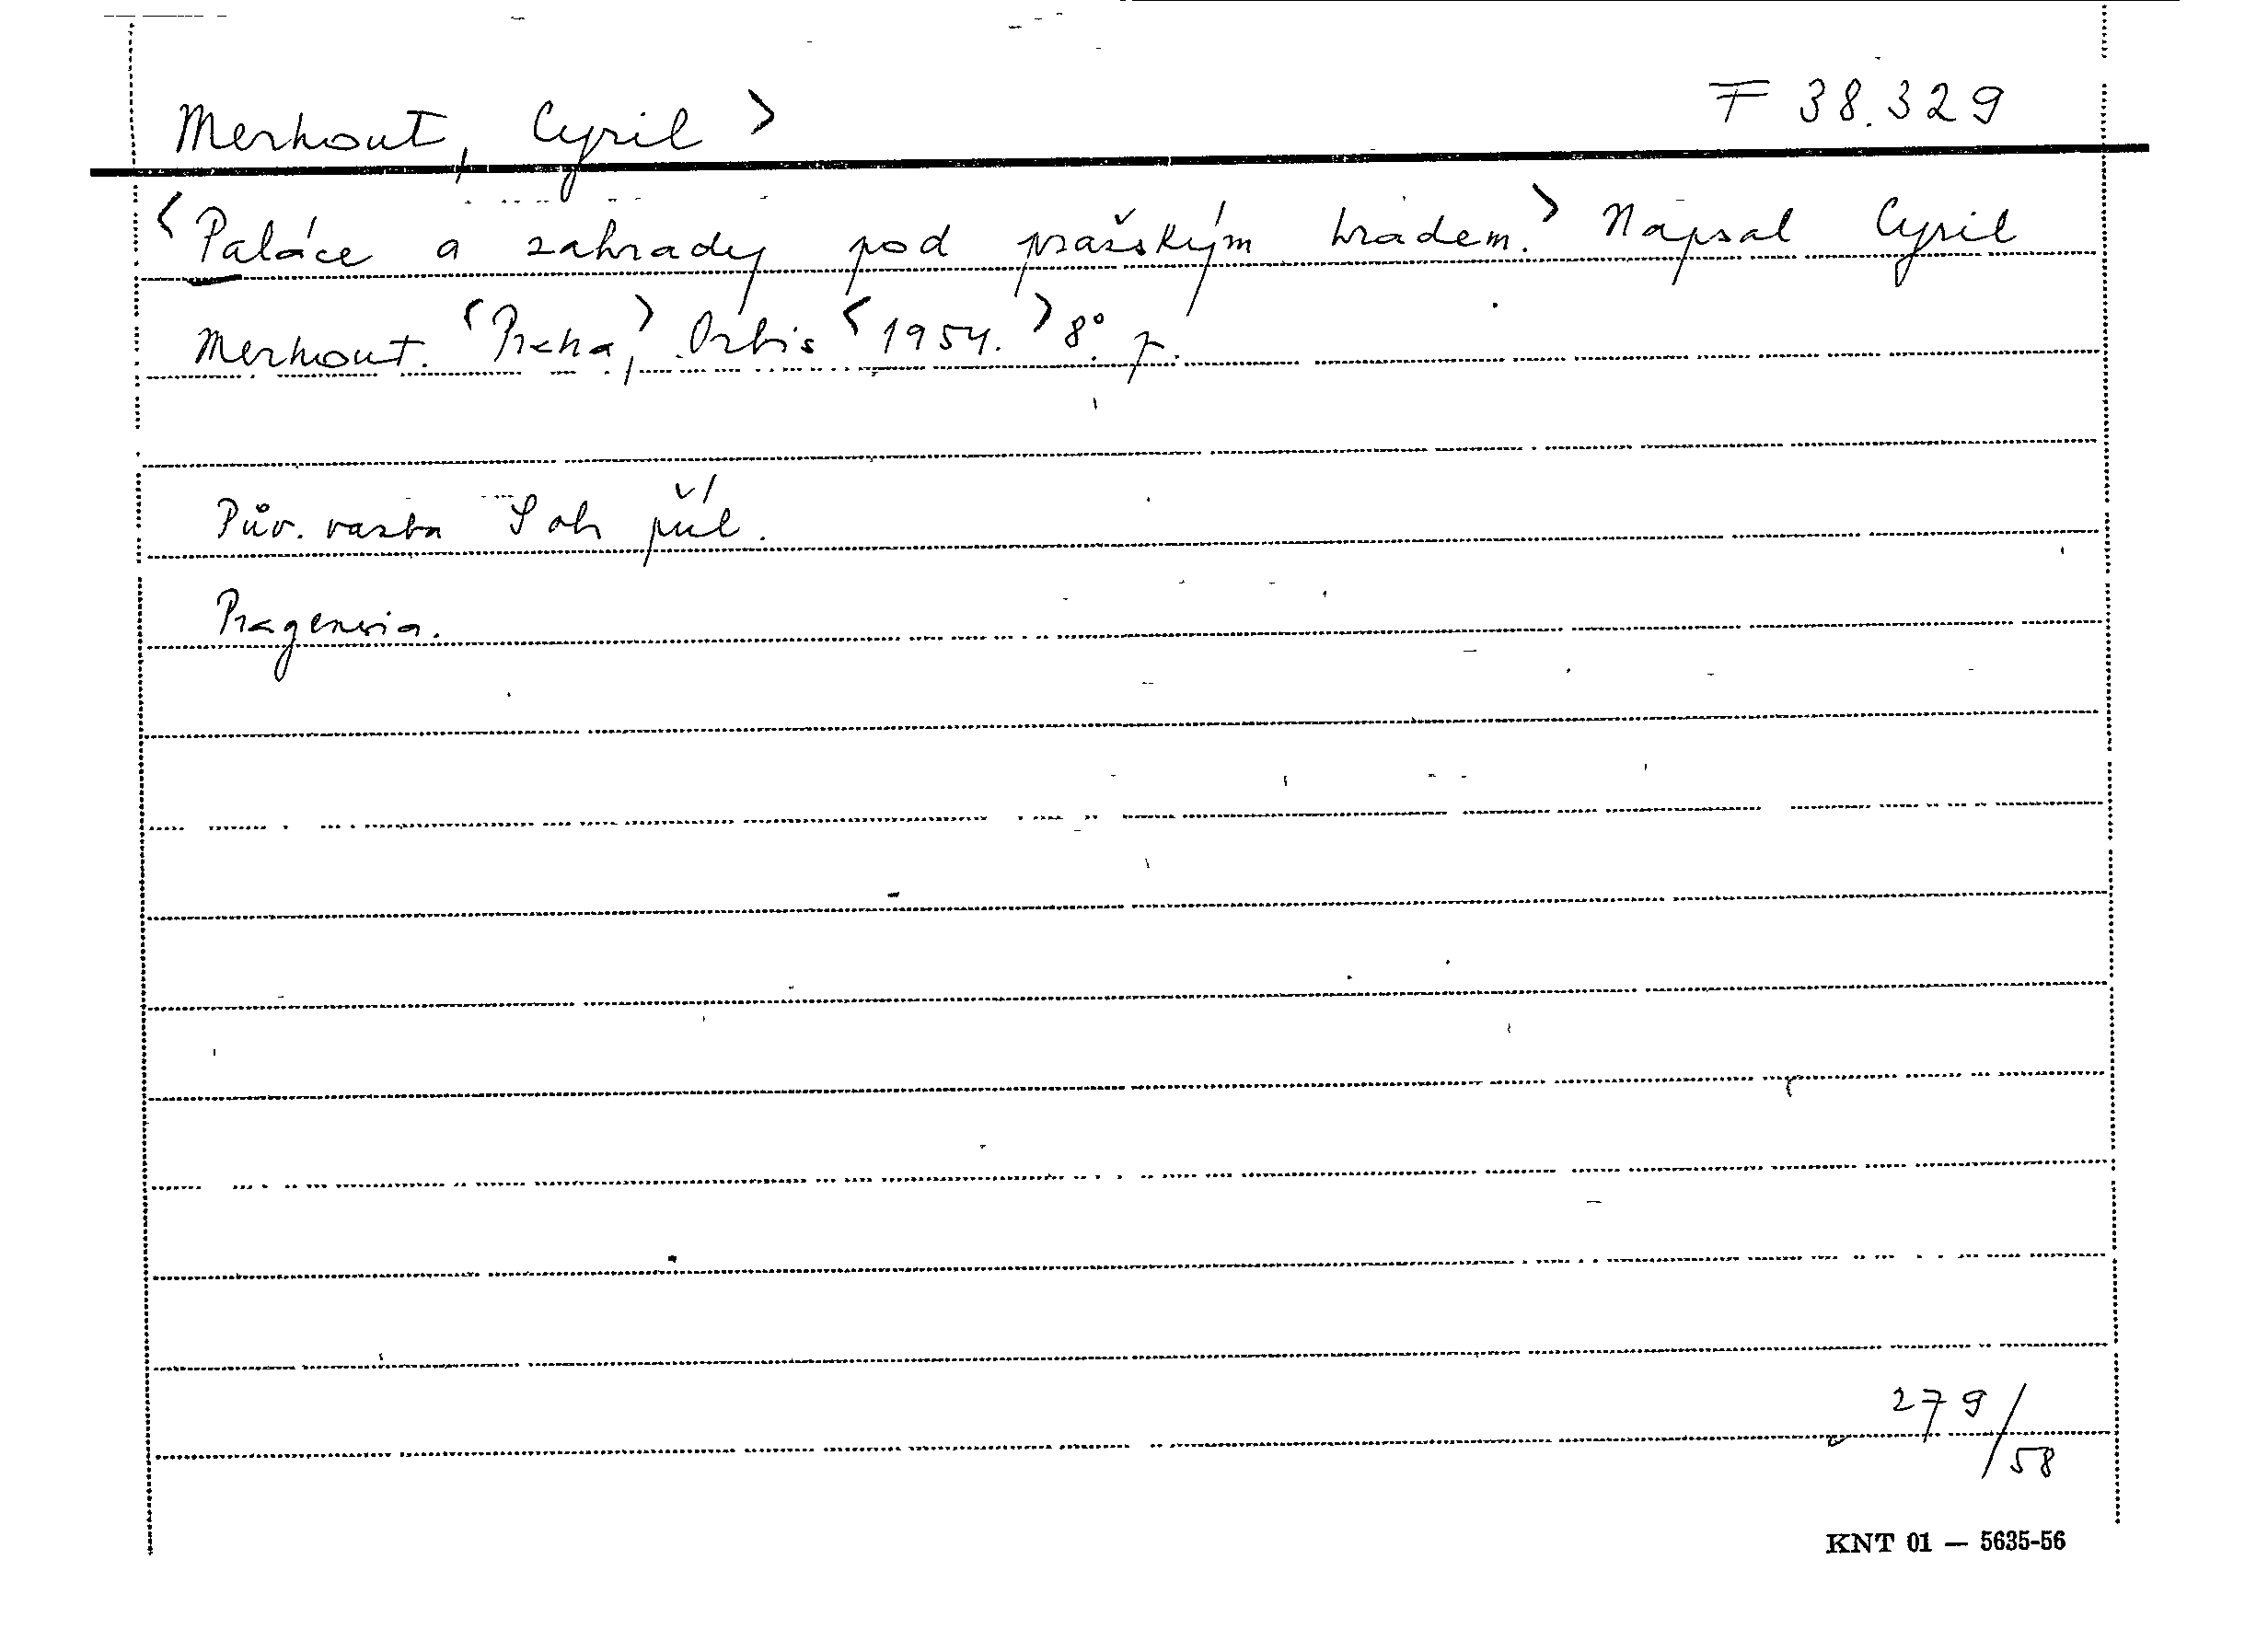 Merhout, Cyril > F 38.329
<Paláce a zahrady pod pražským hradem.> Napsal Cyril
Merhout. <Praha,> Orbis <1954.> 8°. 7.
Pův. vazba S ob příl.
Pragensia.
279/58
KNT 01 — 5635-56